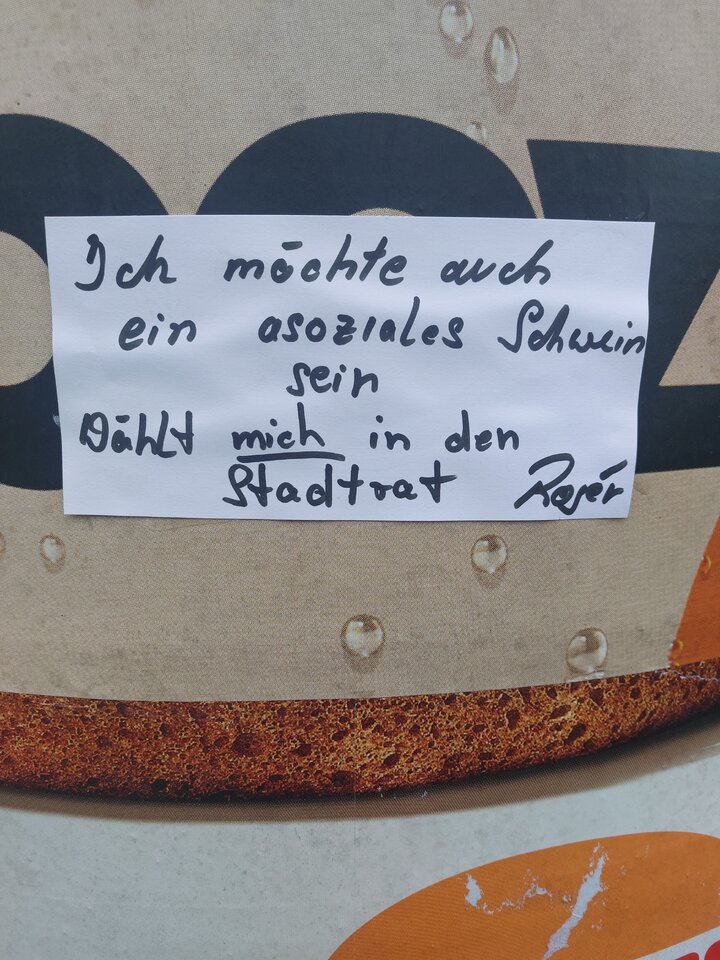 Ich möchte auch
ein asoziales Schwein
sein
Wählt mich in den
Stadtrat Rogér